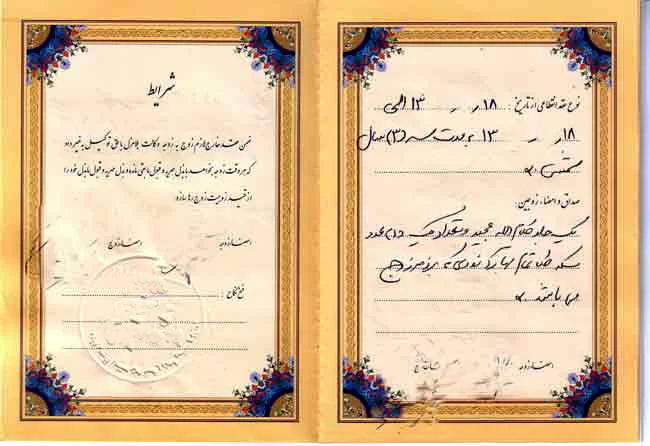 نوع عقد انقطاعی از تاریخ : ۱۸ ر ر ۱۳ الی
۱۸ ر ر ۱۳ بمدت سه (۳) سال
شمسی
صداق و امضاء زوجین :
یک جلد کلام الله مجید و تعداد یک (۱) عدد
سکه طلا تمام بهار آزادی که بر ذمه زوج
می باشد
امضاء زوجه
امضاء زوج
شرایط
ضمن عقد خارج لازم زوج به زوجه وکالت بلاعزل با حق توکیل به غیر داد
که هر وقت زوجه بخواهد با بذل مهریه و قبول مابقی مدت و بذل مهریه و قبول بذل خود را
از قید زوجیت زوج رها سازد
امضاء زوجه
امضاء زوج
فسخ نکاح :